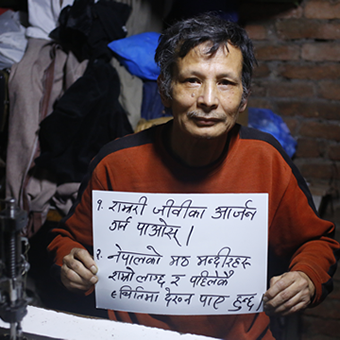 १. राम्ररी जीवीका आर्जन
गर्न पाओस् |
२. नेपालको मठ मन्दीरहरु
राम्रो लाग्छ र पहिलेकै
स्थितिमा देख्न पाए हुन्छ |